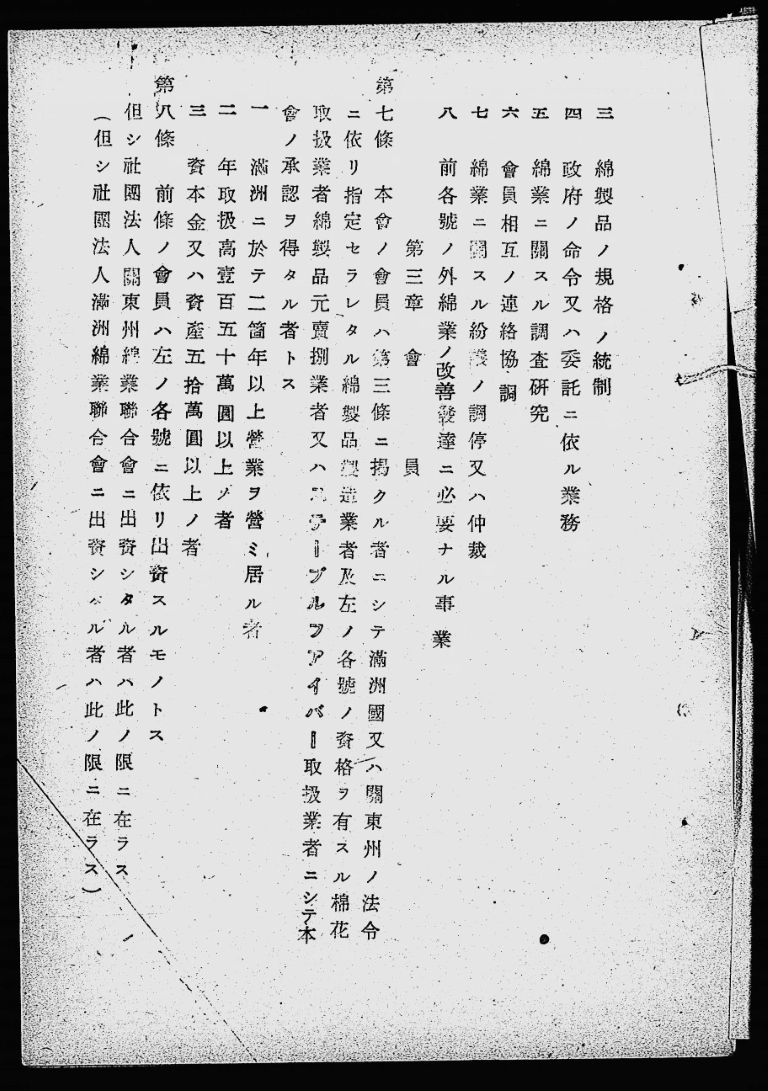 三　綿製品ノ規格ノ統制
四　政府ノ命令又ハ委託ニ依ル業務
五　綿業ニ關スル調査硏究
六　會員相互ノ連絡協調
七　綿業ニ關スル紛議ノ調停又ハ仲裁
八　前各號ノ外綿業ノ改善發達ニ必要ナル事業
第三章　會員
第七條　本會ノ會員ハ第三條ニ揭クル者ニシテ滿洲國又ハ關東州ノ法令
ニ依リ指定セラレタル綿製品製造業者及左ノ各號ノ資格ヲ有スル棉花
取扱業者綿製品元賣捌業者又ハステープルフアイバー取扱業者ニシテ本
會ノ承認ヲ得タル者トス
一　滿洲ニ於テ二箇年以上營業ヲ營ミ居ル者
二　年取扱高壹百五十萬圓以上ノ者
三　資本金又ハ資產五拾萬圓以上ノ者
第八條　前條ノ會員ハ左ノ各號ニ依リ出資スルモノトス
但シ社團法人關東州綿業聯合會ニ出資シタル者ハ此ノ限ニ在ラス
（但シ社團法人滿洲綿業聯合會ニ出資シタル者ハ此ノ限ニ在ラス）